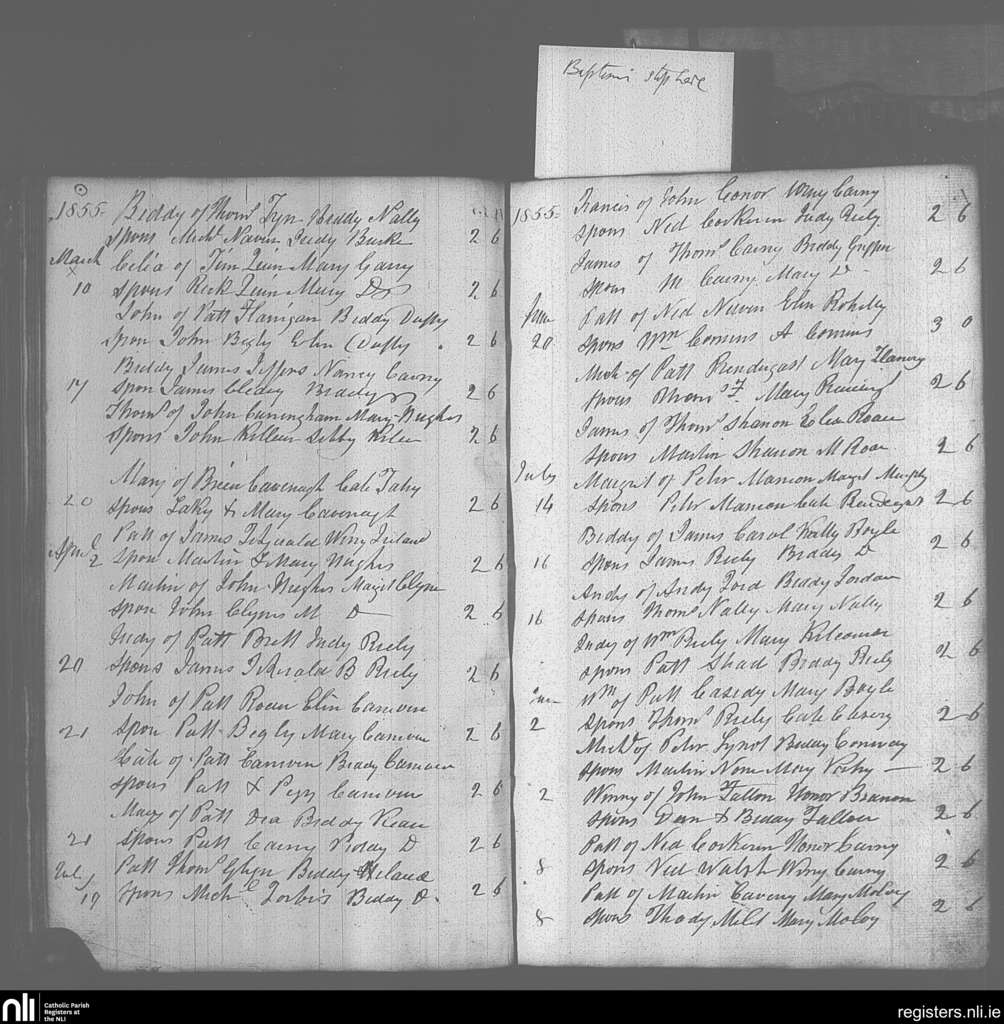 Baptisms stop here
1855. Biddy of Thoms Fyn Biddy Nally
Spons Michl Navin Judy Burke 2 6
March Celia of Tim Quin Mary Garry
10 Spons Rick Quin Mary Do 2 6
John of Patt Flanigan Biddy Duffy
Spon John Begly Elin Duffy 2 6
Biddy James Jeffers Nancy Cawny
17 Spon James Cleary Biddy 2 6
Thoms of John Cuningham Mary Hughes
Spons John Killeen Sibby Kileen 2 6
Mary of Brien Cavenagh Cate Fahy
20 Spons Laky & Mary Cavenagh 2 6
Patt of James Fitzerald Winy Ireland
April 2 Spon Martin & Mary Hughes 2 6
Martin of John Hughes Margt Clyne
Spon John Clyne M D 2 6
Judy of Patt Brett Judy Riely
20 Spons James Fitzerald B Riely 2 6
John of Patt Roan Elin Camion
21 Spon Patt Begly Mary Camion 2 6
Cate of Patt Camion Biddy Camion
Spons Patt & Peggy Camion 2 6
Mary of Patt Dea Biddy Kean
21 Spons Patt Cawny Biddy D 2 6
July Patt Thoms Glyn Biddy Hiland
19 Spons Michl Forbis Biddy D. 2 6
1855. Francis of John Conor Winy Cawny
Spons Ned Corkeren Judy Riely 2 6
James of Thoms Cawny Biddy Griffin
Spon M Cawny Mary D 2 6
June Patt of Ned Nevin Elin
20 Spons Wm Comins A Comins 3 0
Mich of Patt Prendigast Mary Flanery
Spons Thoms F Mary 2 6
James of Thoms Shanon Elen Roan
Spons Martin Shanon M Roan 2 6
July Margrit of Peter Manion Margt Murphy
14 Spons Peter Manion Cate Prendergast 2 6
Biddy of James Carol Katty Boyle
16 Spons James Riely Biddy D 2 6
Andy of Andy Ford Biddy Jordan
16 Spons Thoms Nally Mary Nally 2 6
Judy of Wm Riely Mary Kilcomer
Spons Patt Shad Biddy Riely 2 6
June Wm of Patt Casedy Mary Boyle
2 Spons Thoms Riely Cate Casery 2 6
Michl of Peter Synot Biddy Conway
Spons Martin None Mary Vahy 2 6
2 Winny of John Fallon Honor Branon
Spons Dan & Biddy Fallon 2 6
Patt of Ned Corkeren Honor Cawny
8 Spons Ned Walsh Winy Cawny 2 6
Patt of Martin Caveny Mary Moloy
8 Spons Thady Mild Mary Moloy 2 6
nli Catholic Parish
Registers at
the NLI
registers.nli.ie